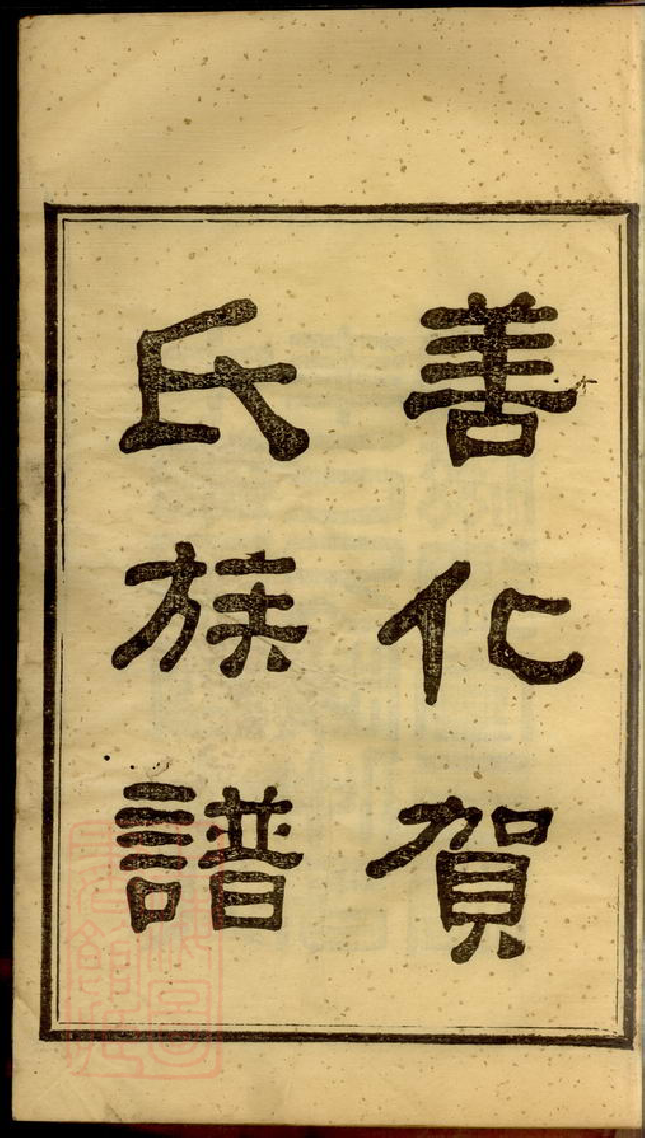 善化賀
氏族譜